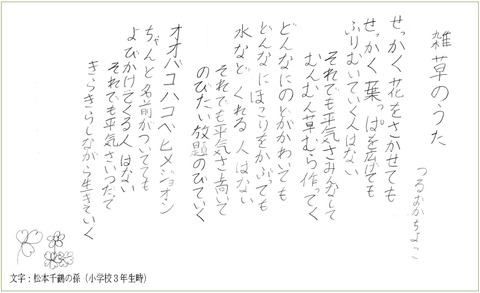 雑草のうた
つるおかちよこ
せっかく花をさかせても
せっかく葉っぱを広げても
ふりむいていく人はない
それでも平気さみんなして
むんむん草むら作ってく
どんなにのどがかわいても
どんなにほこりをかぶっても
水など くれる 人はない
それでも平気さ上向いて
のびたい放題のびていく
オオバコハコベヒメジョオン
ちゃんと名前がついてても
よびかけてくる人はない
それでも平気さいつだって
きらきらしながら生きていく
文字：松本千鶴の孫（小学校３年生時）